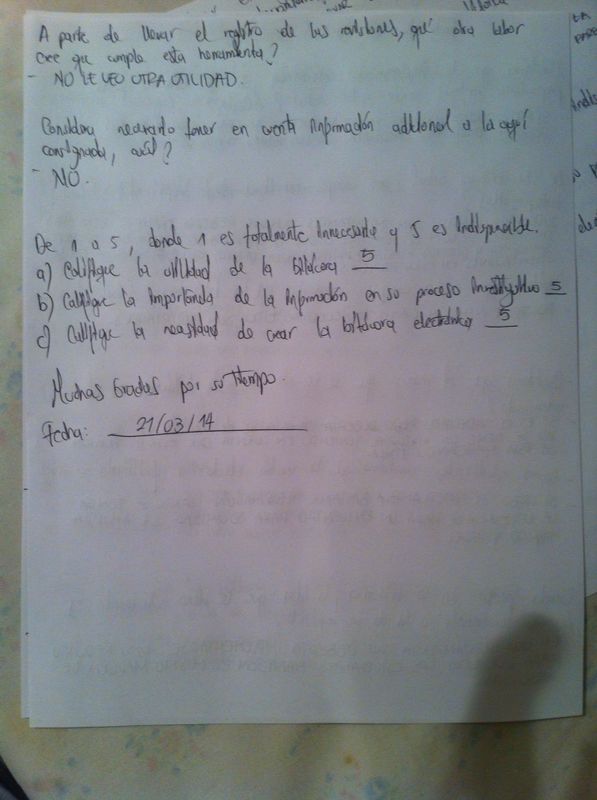 A parte de llevar el registro de las revisiones, qué otra labor
cree que cumpla esta herramienta?
- NO LE VEO OTRA UTILIDAD.
Considera necesario tener en cuenta información adicional a la aquí
consignada, cuál?
- NO.
De 1 a 5, donde 1 es totalmente innecesario y 5 es indispensable.
a) Califique la utilidad de la bitácora 5
b) Califique la importancia de la información en su proceso investigativo 5
c) Califique la necesidad de crear la bitácora electrónica 5
Muchas Gracias por su tiempo.
Fecha: 21/03/14